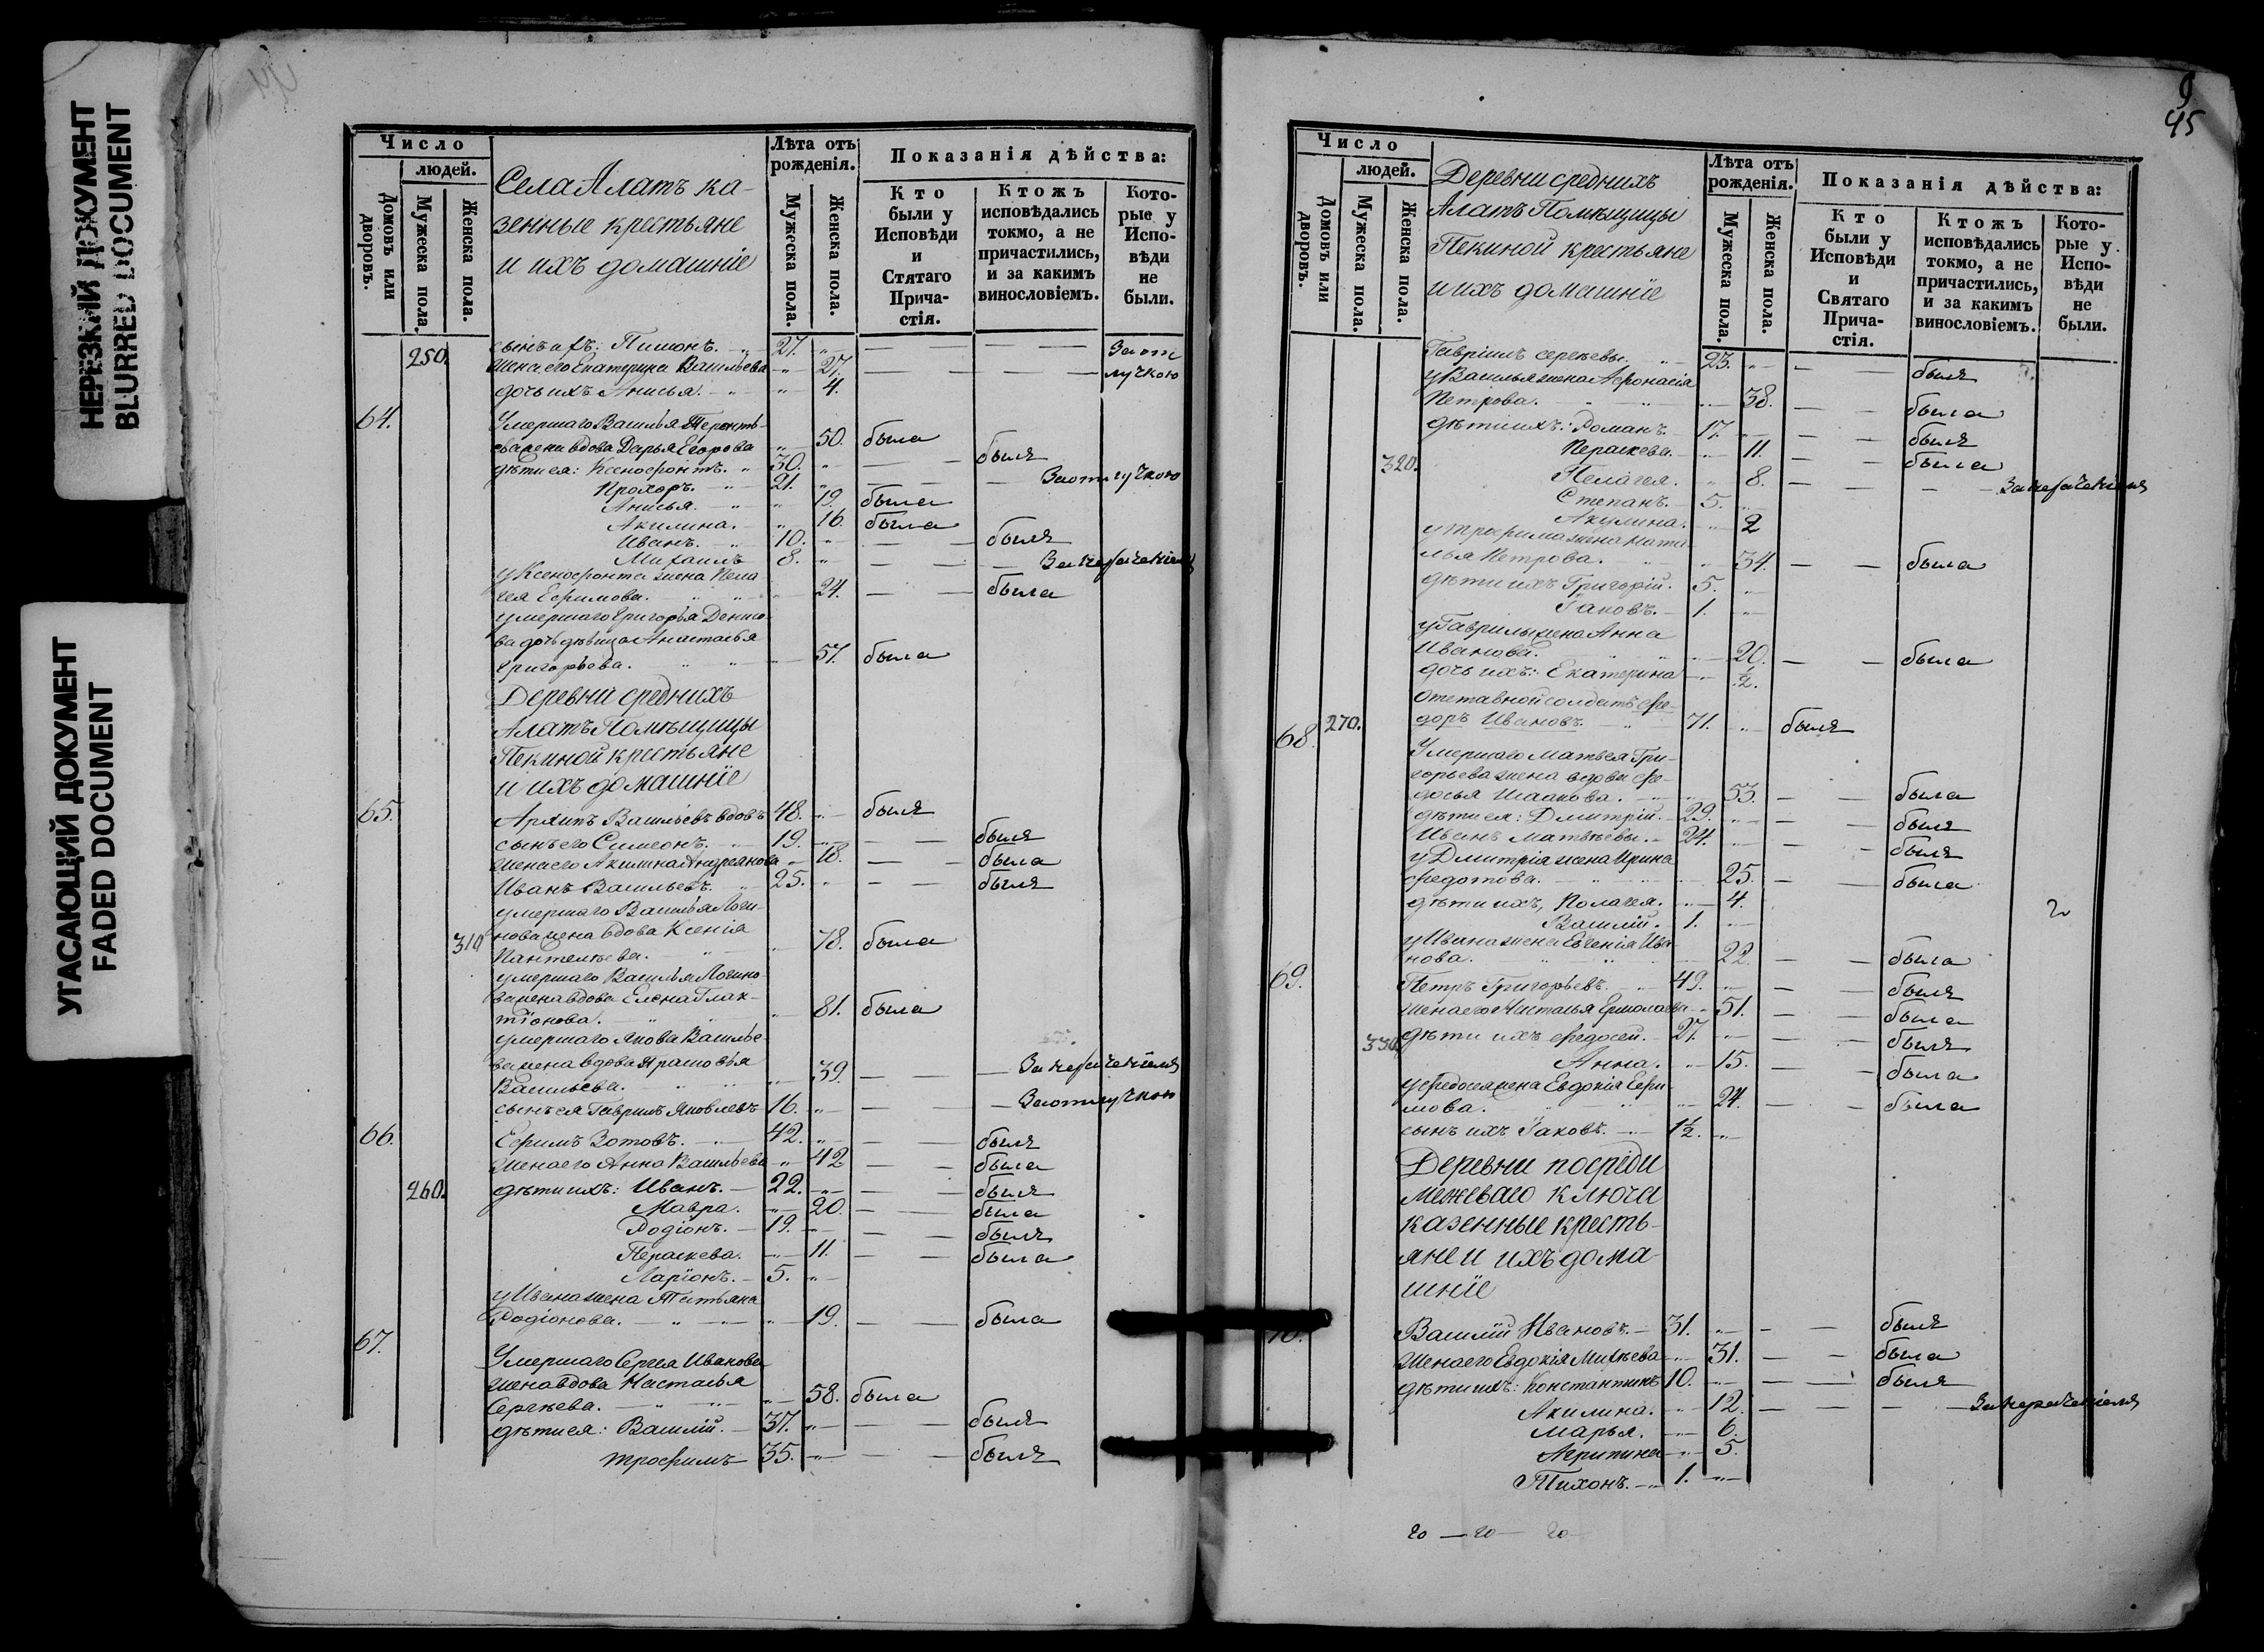 НЕРЕЗКИЙ ДОКУМЕНТ
BLURRED DOCUMENT
УГАСАЮЩИЙ ДОКУМЕНТ
FADED DOCUMENT
Число
людей.
Домовъ или дворовъ.
Мужеска пола.
Женска пола.
Села Алатъ ка-
зенные крестьяне
и ихъ домашніе
Лѣта отъ рожденія.
Мужеска пола.
Женска пола.
Показанія дѣйства:
Кто были у Исповѣди и Стятаго Прича-стія.
Ктожъ исповѣдались токмо, а не причастились, и за какимъ винословіемъ.
Кото-рые у Испо-вѣди не были.
250. сынъ Пимонъ. 27. За от
жена его Екатерина Васильева 27. лучкою
дочь ихъ Анисья. 4.
64. Умершаго Василья
жена вдова Дарья Егорова 50. была
дѣти ея: Ксенофонтъ. 30. былъ
Прохоръ. 21. За отлучкою
Анисья. 19. была
Акилина. 16. была
Иванъ. 10. былъ
Михаилъ 8. За нераченіемъ
у Ксенофонта жена Пела
гея Ефимова. 24. была
умершаго Григорья Денисо
ва дочь дѣвица Анастасья
Григорьева. 57. была
Деревни среднихъ
Алатъ Помѣщицы
Пекиной крестьяне
и ихъ домашніе
65. Архипъ Васильевъ вдовъ 48. былъ
сынъ его Симеонъ. 19. былъ
жена его Акилина Андреянова 18. была
Иванъ Васильевъ. 25. былъ
умершаго Василья Логи-
310 нова жена вдова Ксенія
Пантелѣева. 78. была
умершаго Василья Логино
ва жена вдова Елена Галак-
тіонова. 81. была
умершаго Якова Василье
ва жена вдова Прасковья
Васильева. 39. За нераченіемъ
сынъ ея Гаврилъ Яковлевъ 16. За отлучкою
66. Ефимъ Зотовъ. 42. былъ
жена его Анна Васильева 42 была
260. дѣти ихъ: Иванъ. 22. былъ
Мавра. 20. была
Родіонъ. 19. былъ
Параскева. 11. была
Ларіонъ. 5.
у Ивана жена Татьяна
Родіонова. 19. была
67. Умершаго Сергея Иванова
жена вдова Настасья
Сергѣева. 58. была
дѣти ея: Василій. 37. былъ
Трофимъ 35. былъ
9
45
Число
людей.
Домовъ или дворовъ.
Мужеска пола.
Женска пола.
Деревни среднихъ
Алатъ Помѣщицы
Пекиной крестьяне
и ихъ домашніе
Лѣта отъ рожденія.
Мужеска пола.
Женска пола.
Показанія дѣйства:
Кто были у Исповѣди и Святаго Прича-стія.
Ктожъ исповѣдались токмо, а не причастились, и за какимъ винословіемъ.
Кото-рые у Испо-вѣди не были.
Гавріилъ Сергѣевы. 23. былъ
у Василья жена Афонасія
Петрова. 38. была
дѣти ихъ: Романъ. 17. былъ
Параскева. 11. была
320. Пелагея. 8. За нераченіемъ
Степанъ. 5.
Акулина. 2
у Трофима жена Ната
лья Петрова. 34. была
дѣти ихъ Григорій. 5.
Іаковъ. 1.
у Гаврилы жена Анна
Иванова. 20. была
дочь ихъ: Екатерина 1/2.
Отставной солдатъ Фе-
270. доръ Ивановъ. 71. былъ
68. Умершаго Матвея Гри-
горьева жена вдова Фе-
досья Исаакова. 53. была
дѣти ея: Дмитрій. 29. былъ
Иванъ Матвѣевы. 24. былъ
у Дмитрія жена Ирина
Федотова. 25. была
дѣти ихъ, Пелагея. 4.
Василій. 1.
у Ивана жена Евгенія Ива
нова. 22. была
69. Петръ Григорьевъ. 49. былъ
жена его Настасья Ермолаева 51. была
330 дѣти ихъ Федосей. 27. былъ
Анна. 15. была
у Федосея жена Евдокія Ефи-
мова. 24. была
сынъ ихъ Іаковъ. 1 1/2.
Деревни посреди
Межеваго ключа
казенные кресть-
яне и ихъ дома
шніе
70. Василій Ивановъ. 31. былъ
жена его Евдокія Михѣева 31. была
дѣти ихъ: Константинъ 10. былъ
Акилина. 12. За нераченіемъ
Марья. 6.
Агрипина 5.
Тихонъ. 1.
20 — 20 — 20